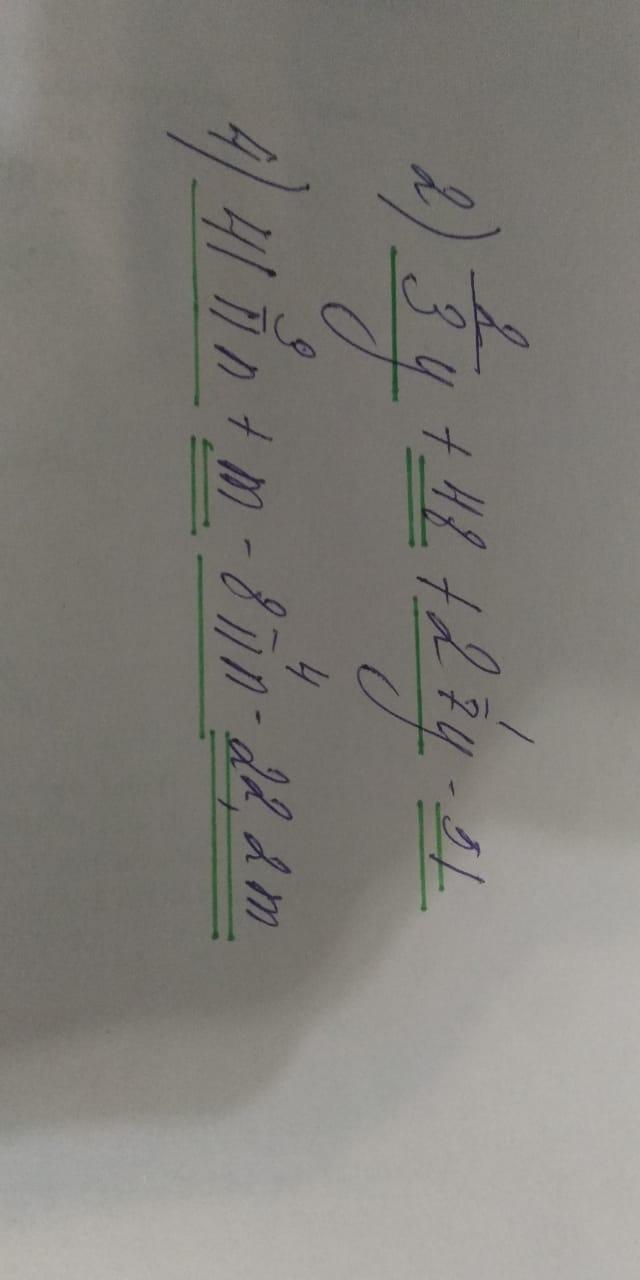 2) 2/3 y + 48 + 2 1/7 y - 51
4) 41 9/11 n + m - 8 4/11 n - 22,2m